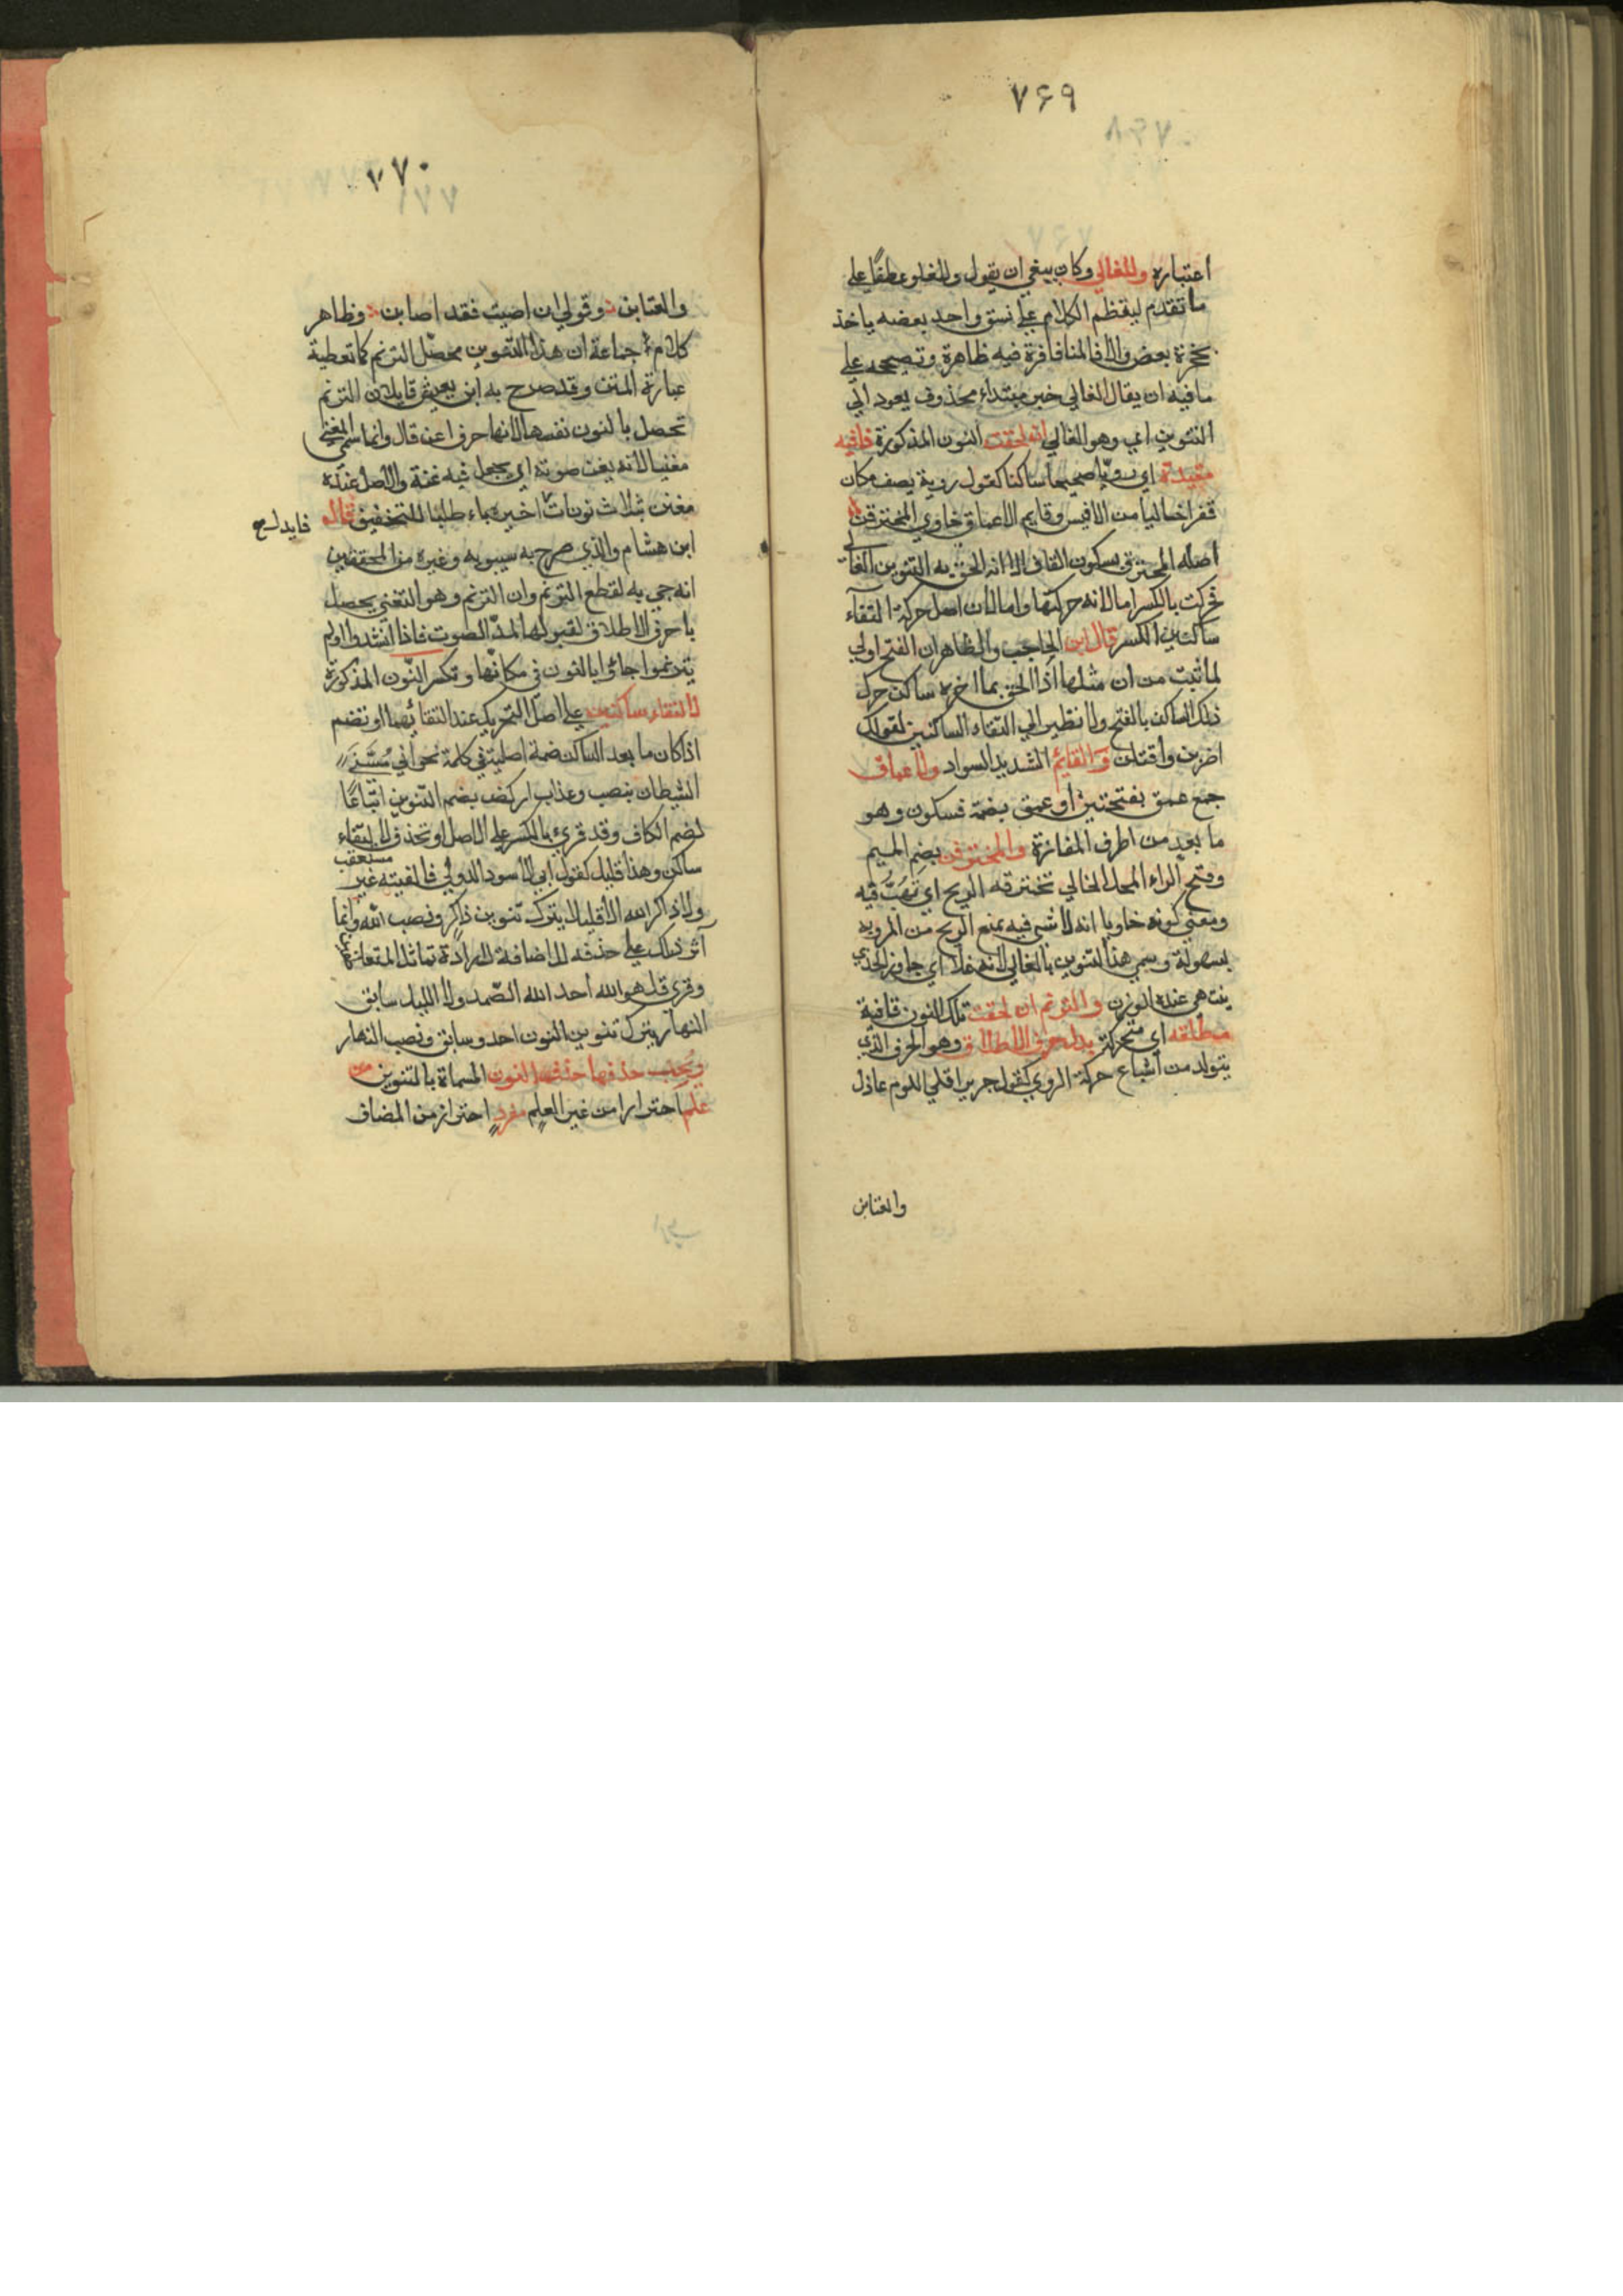 ٧٦٩
اعتباره والغالي وكان ينبغي ان يقول وللغلو عطفًا على
ما تقدم لينتظم الكلام على نسق واحد بعضه ياخذ
بحجزة بعض والا فالمنافرة فيه ظاهرة وتصحيحه على
ما فيه ان يقال الغالي خبر مبتداء محذوف يعود الى
التنوين اي وهو الغالي ان لحقت النون المذكورة قافيه
مقيدة اي رويًا صحيحا ساكنا كقول روبة يصف مكان
قفرا خاليا من الانيس وقايم الاعماق خاوي المخترقن
اصله المخترق بسكون القاف الا انه الحق به التنوين الغالي
فحركت بالكسر اما لانه حركتها واما لان اصل حركة التقاء
ساكنين الكسر قال ابن الحاجب والظاهر ان الفتح اولى
لما ثبت من ان مثلها اذا الحق بما اخره ساكن حرك
ذلك الساكن بالفتح ولا نظير الى التقاء الساكنين لقولك
اضربن واقتلن والقائم الشديد السواد والاعماق
جمع عمق بفتحتين او عمق بضمة فسكون وهو
ما بعد من اطرف المفازة والمخترق بضم الميم
وفتح الراء المحل الخالي تخترقه الريح اي تهبّ فيه
ومعنى كونه خاويا انه لا شي فيه يمنع الريح من المرور به
بسهولة وسمي هذا التنوين بالغالي لانه غلا اي جاوز الحد الذي
ينتهي عنده الوزن والترنم ان لحقت تلك النون قافية
مطلقه اي متحركة بدل حرف الاطلاق وهو الحرف الذي
يتولد من اشباع حركة الروي كقول جرير اقلي اللوم عاذل
والعتابن
٧٧٠
والعتابن وقولي ان اصبت فقد اصابن وظاهر
كلام جماعة ان هذا التنوين محصّل الترنم كما تعطية
عبارة المتن وقد صرح به ابن يعيش قايلا ان الترنم
تحصل بالنون نفسها لانها حرف اغن قال وانما سمي المغني
مغنيا لانه يغن صوته اي يجعل فيه غنة والاصل عنده
مغنن بثلاث نونات اخيره ياء طلبا للتخفيف قال
ابن هشام والذي صرح به سيبويه وغيره من المحققين
انه جي به لقطع الترنم وان الترنم وهو التغني يحصل
باحرف الاطلاق لقبولها لمدّ الصوت فاذا انشدوا ولم
يترنموا جاؤا بالنون في مكانها وتكسر النّون المذكورة
لالتقاء ساكنين على اصل التحريك عند التقائهما او تضم
اذا كان ما بعد الساكن ضمة اصلية في كلمة نحو اني مسّني
الشيطان بنصب وعذاب اركض بضم التنوين اتباعًا
لضم الكاف وقد قرئ بالكسر على الاصل او تحذف لالتقاء
ساكن وهذا قليل كقول ابي الاسود الدولي فالفيته غير مستعتب
ولا ذاكر الله الا قليلا بترك تنوين ذاكر ونصب الله وانما
آثر ذلك على حذفه للاضافة لارادة تماثل المتعاطفين
وقرئ قل هو الله أحد الله الصّمد ولا الليل سابق
النهار بترك تنوين النون احد وسابق ونصب النهار
ويجب حذفها حذف النون المسماة بالتنوين من
علم احترارا من غير العلم مفرد احتراز من المضاف